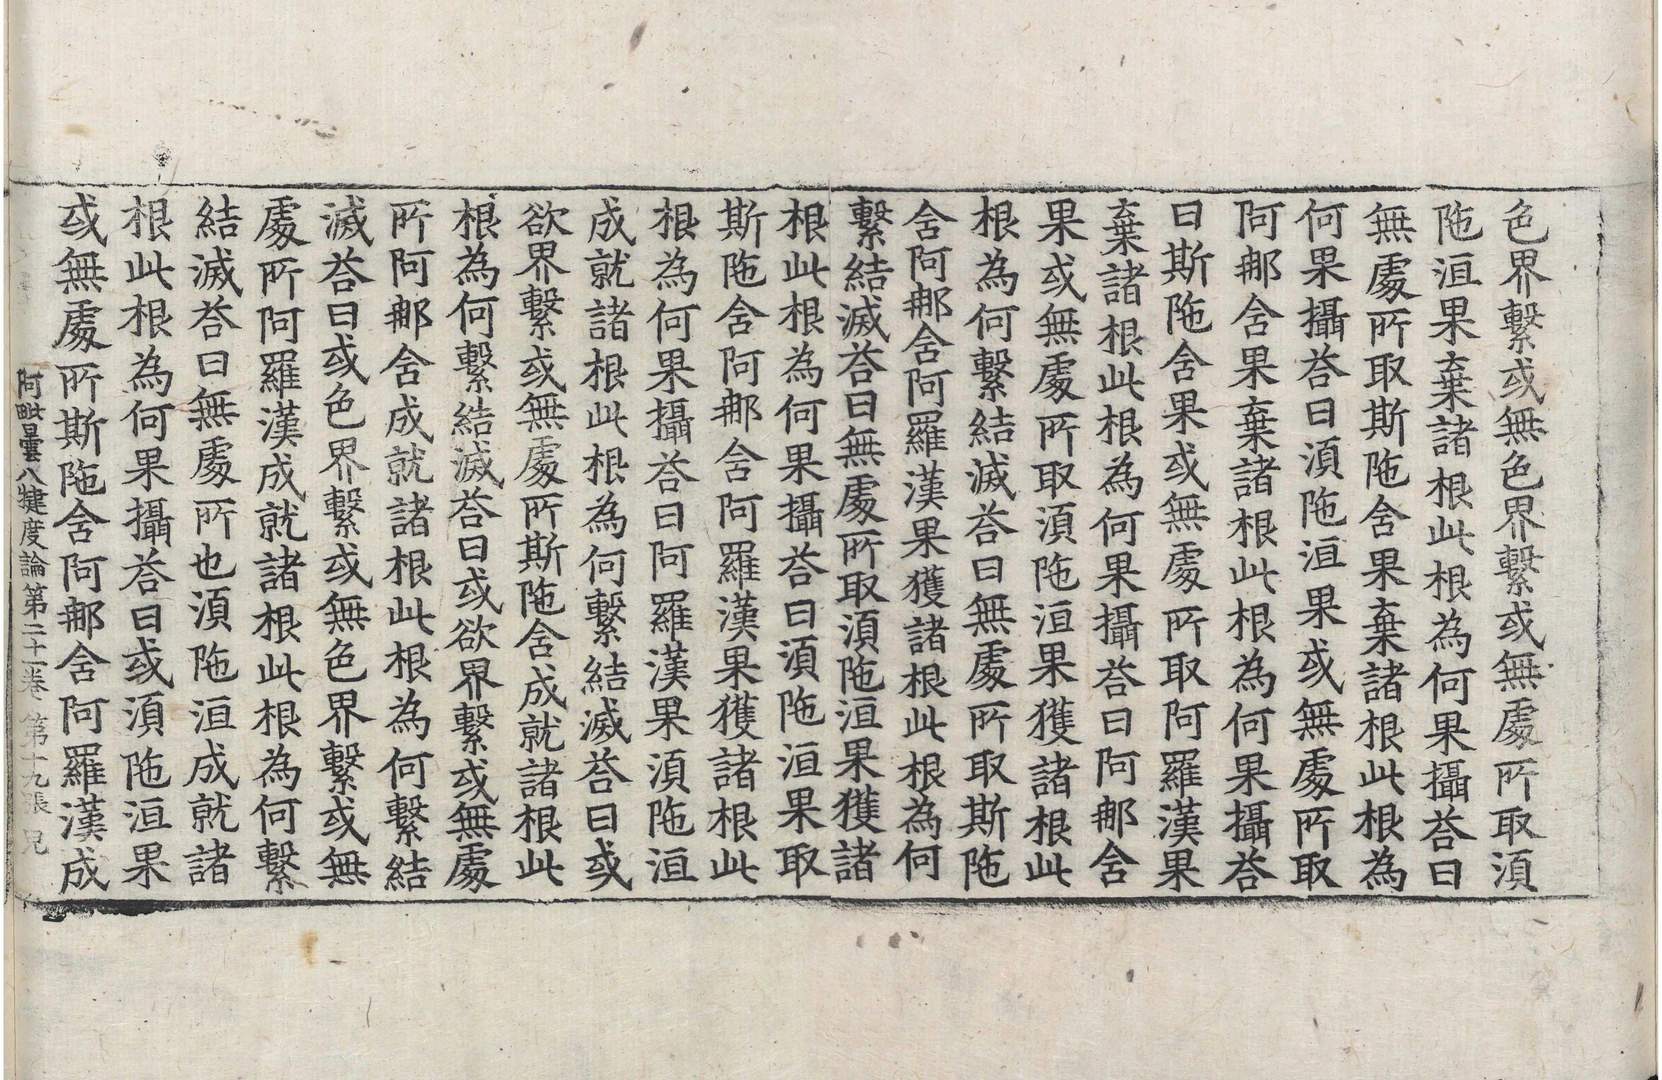 色界繫或無色界繫或無處所取湏
陁洹果棄諸根此根為何果攝荅曰
無處所取斯陁舍果棄諸根此根為
何果攝荅曰湏陁洹果或無處所取
阿那舍果棄諸根此根為何果攝荅
曰斯陁舍果或無處所取阿羅漢果
棄諸根此根為何果攝荅曰阿那舍
果或無處所取湏陁洹果獲諸根此
根為何繫結滅荅曰無處所取斯陁
舍阿那舍阿羅漢果獲諸根此根為何
繫結滅荅曰無處所取湏陁洹果獲諸
根此根為何果攝荅曰湏陁洹果取
斯陁舍阿那舍阿羅漢果獲諸根此
根為何果攝荅曰阿羅漢果湏陁洹
成就諸根此根為何繫結滅荅曰或
欲界繫或無處所斯陁舍成就諸根此
根為何繫結滅荅曰或欲界繫或無處
所阿那舍成就諸根此根為何繫結
滅荅曰或色界繫或無色界繫或無
處所阿羅漢成就諸根此根為何繫
結滅荅曰無處所也湏陁洹成就諸
根此根為何果攝荅曰或湏陁洹果
或無處所斯陁舍阿那舍阿羅漢成
阿毗曇八犍度論第二十一卷 第十九張 兄